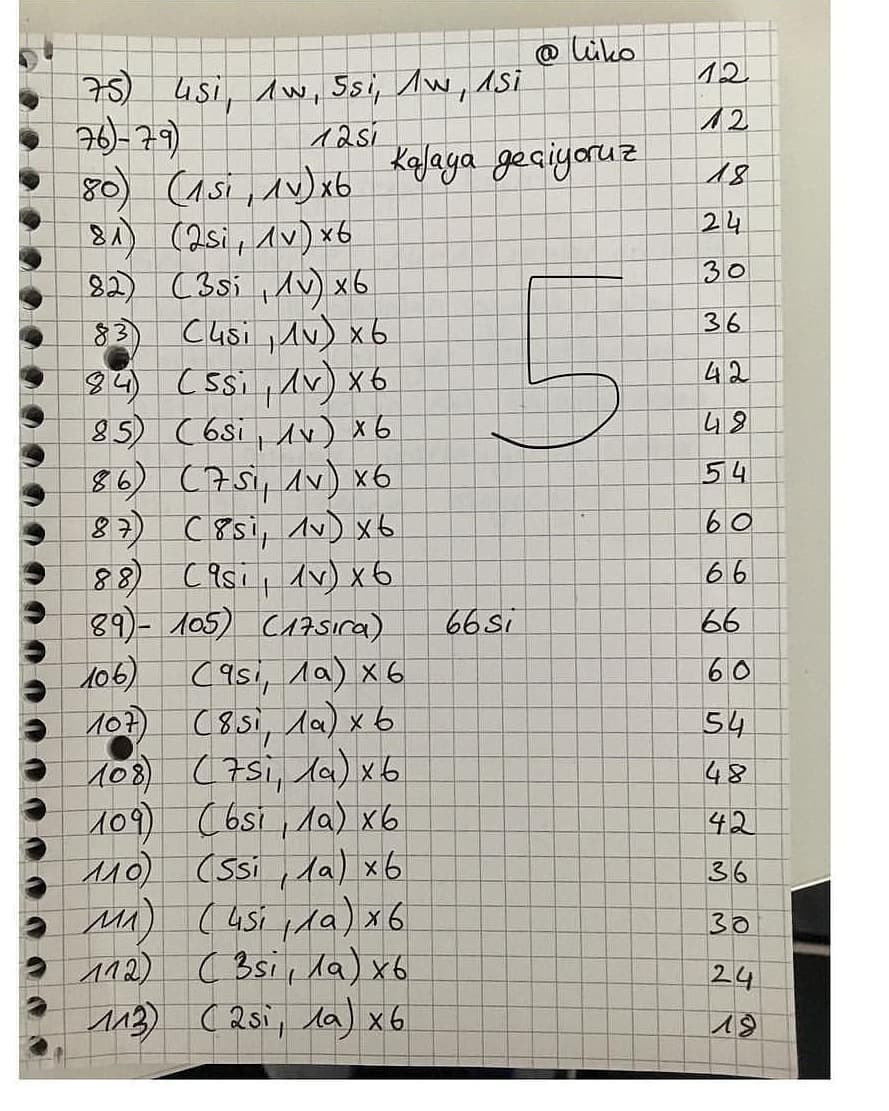 @ lüko
75) 4si, 1w, 5si, 1w, 1si 12
76)-79) 12si 12
Kafaya geçiyoruz
80) (1si, 1v)x6 18
81) (2si, 1v)x6 24
82) (3si, 1v)x6 30
83) (4si, 1v)x6 36
84) (5si, 1v)x6 42
85) (6si, 1v)x6 48
86) (7si, 1v)x6 54
87) (8si, 1v)x6 60
88) (9si, 1v)x6 66
5
89)-105) (17sıra) 66si 66
106) (9si, 1a)x6 60
107) (8si, 1a)x6 54
108) (7si, 1a)x6 48
109) (6si, 1a)x6 42
110) (5si, 1a)x6 36
111) (4si, 1a)x6 30
112) (3si, 1a)x6 24
113) (2si, 1a)x6 18